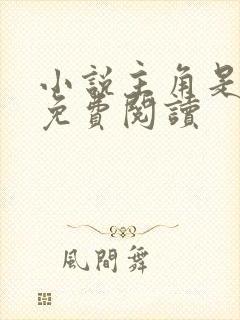 小說主角是
免費閱讀
風間舞